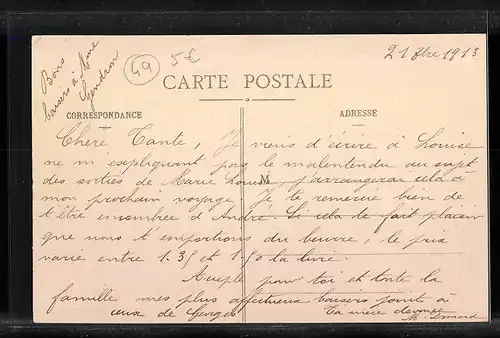 Bons
baisers à Mme
Gendron
49
5€
21 Xbre 1913
CARTE POSTALE
CORRESPONDANCE
ADRESSE
M
Chere Tante, Je viens d'écrire à Louise
ne m'expliquant pas le malentendu au sujet
des sorties de Marie Louise, j'arrangerai cela à
mon prochain voyage. Je te remercie bien de
t'être occupée d'André. Si cela te fait plaisir
que nous t'emportions du beurre, le prix
varie entre 1.35 et 1.50 la livre.
Accepte pour toi et toute la
famille mes plus affectueux baisers joints à
ceux de Georges
Ta nièce dévouée
M.